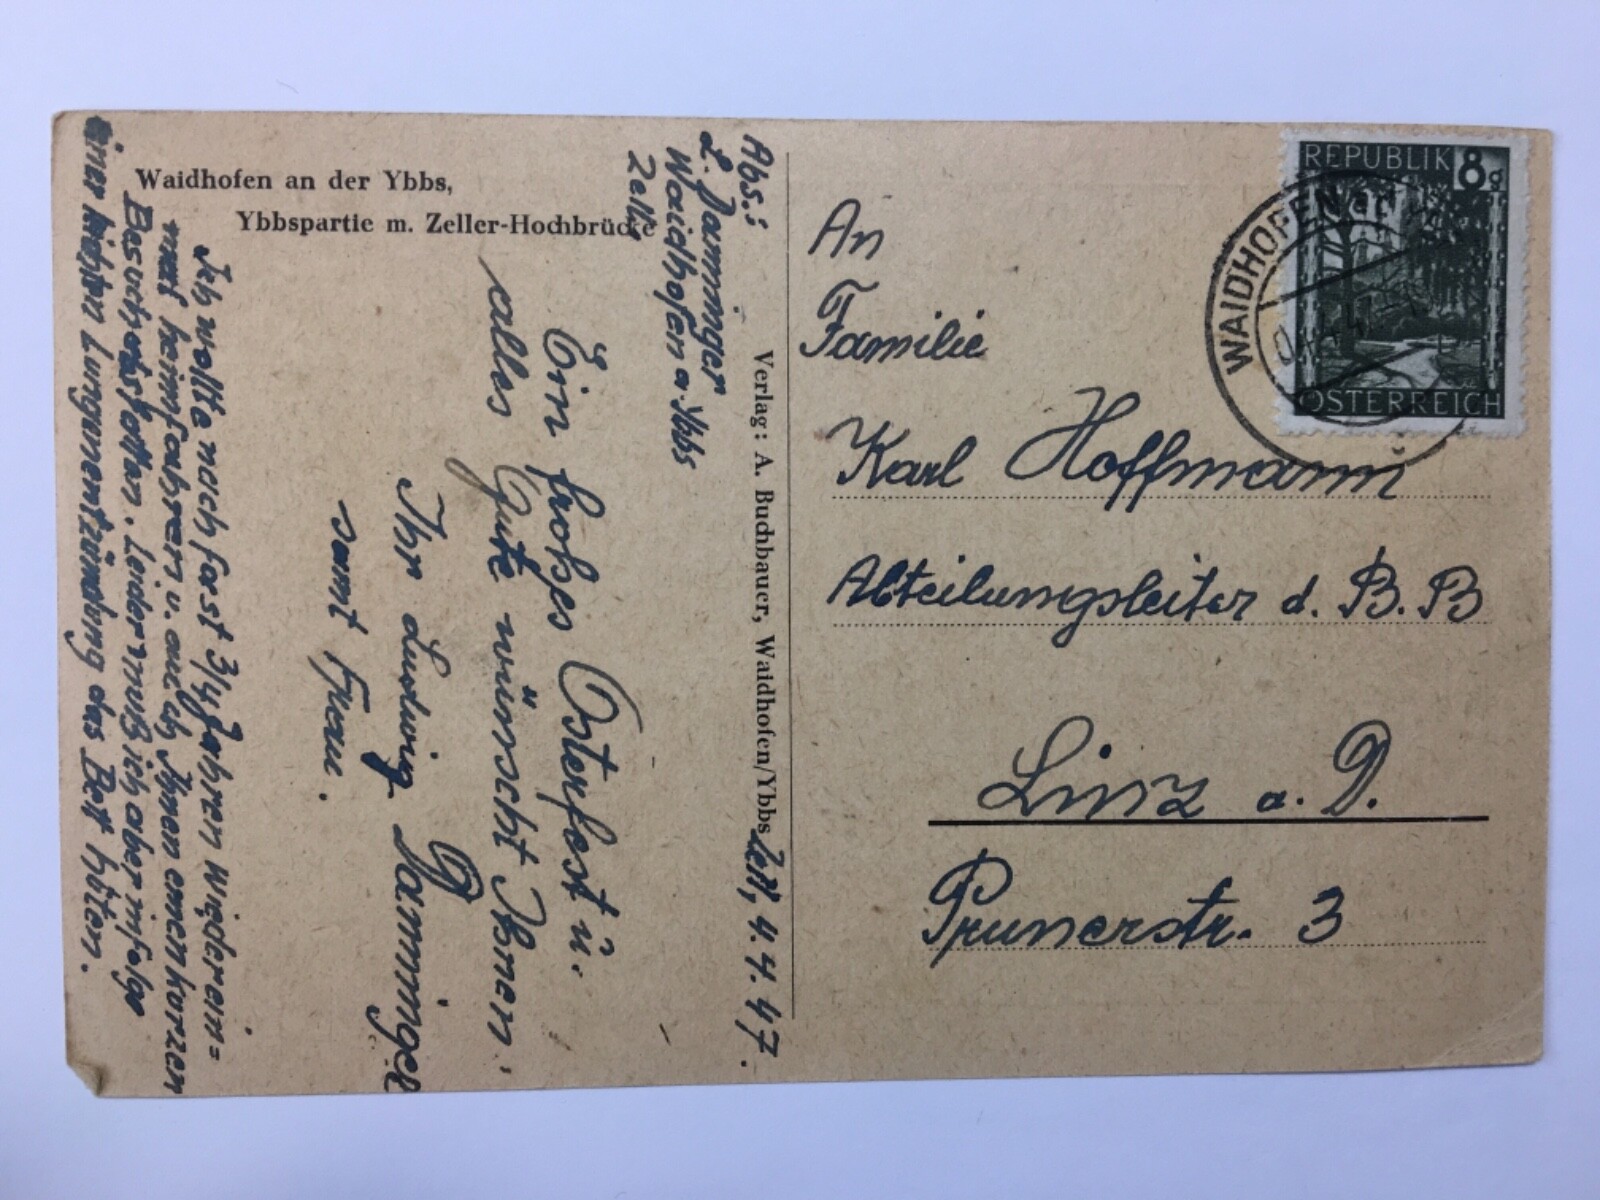 Waidhofen an der Ybbs,
Ybbspartie m. Zeller-Hochbrücke
Abs.:
L. Danninger
Waidhofen a. Ybbs
Zell,
Zell, 4. 4. 47.
Ein frohes Osterfest u.
alles Gute wünscht Ihnen.
Ihr Ludwig Danninger
samt Frau.
Ich wollte nach fast 3/4 Jahren wieder ein=
mal heimfahren u. auch Ihnen einen kurzen
Besuch abstatten. Leider muß ich aber infolge
einer Lungenentzündung das Bett hüten.
Verlag: A. Buchbauer, Waidhofen/Ybbs
REPUBLIK 8g
ÖSTERREICH
WAIDHOFEN
An
Familie
Karl Hoffmann
Abteilungsleiter d. B. B
Linz a. D.
Prunerstr. 3